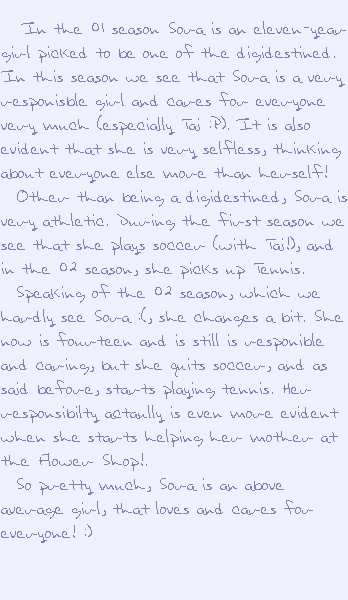 In the 01 season Sora is an eleven-year
girl picked to be one of the digidestined.
In this season we see that Sora is a very
responisble girl and cares for everyone
very much (especially Tai :P). It is also
evident that she is very selfless, thinking
about everyone else more than herself!
Other than being a digidestined, Sora is
very athletic. During the first season we
see that she plays soccer (with Tai!), and
in the 02 season, she picks up Tennis.
Speaking of the 02 season, which we
hardly see Sora :(, she changes a bit. She
now is fourteen and is still is responible
and caring, but she quits soccer, and as
said before, starts playing tennis. Her
responsibilty actaully is even more evident
when she starts helping her mother at
the Flower Shop!.
So pretty much, Sora is an above
average girl, that loves and cares for
everyone! :)